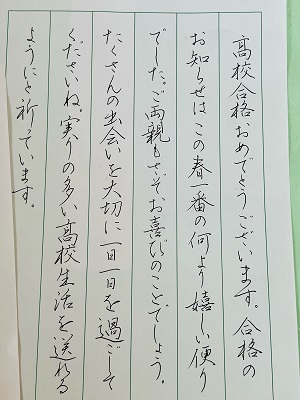 高校合格おめでとうございます。合格の
お知らせはこの春一番の何より嬉しい便り
でした。ご両親もさぞお喜びのことでしょう。
たくさんの出会いを大切に一日一日を過ごして
くださいね。実りの多い高校生活を送れる
ようにと祈っています。